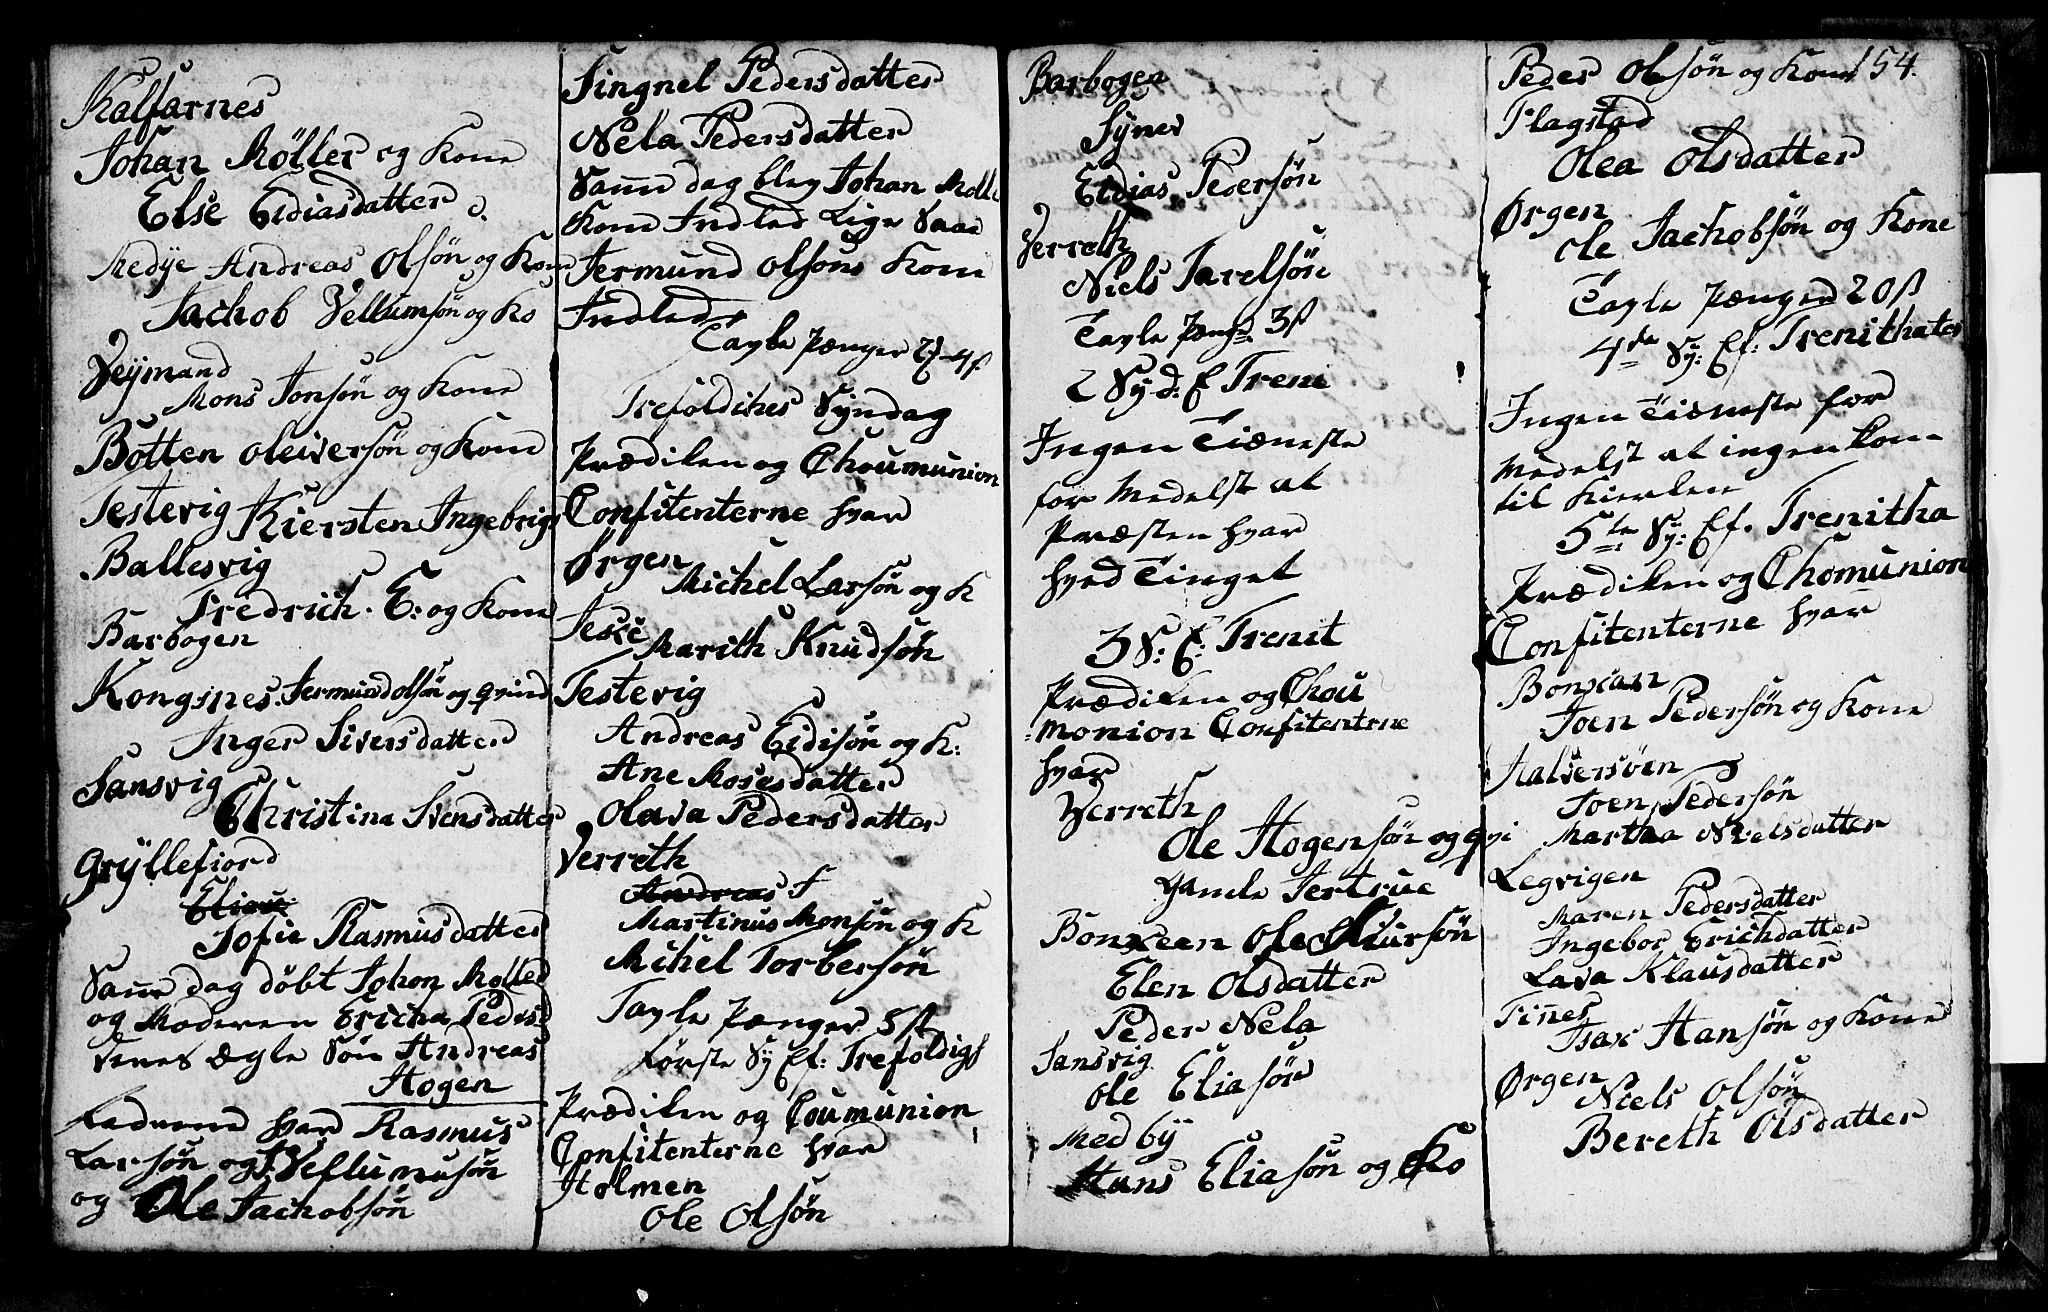 Kalfarnes
Johan Møller og Kone
Else Eidiasdatter
Medye Andreas Olsøn og Kone
Jachob Vellumsøn og Ko
Veymand
Mons Jonsøn og Kone
Botten Oleiversøn og Kone
Testevig Kiersten Ingebrigs
Ballesvig
Fredrich E: og Kone
Barbogen
Kongsnes Jermund Olsøn og qvind
Inger Siversdatter
Sansvig
Christina Svensdatter
Gryllefiord
Sofia Rasmusdatter
Same dag døbt Johan Møller
og Moderen Ericha Peders
Venes Ægle Søn Andreas
Hogen
Fadnerne hvar Rasmus
Larsøn og Vellumsøn
og Ole Jachobsøn
Singnel Pedersdatter
Nela Pedersdatter
Same dag blev Johan Møll
Kone Indled Lige Saae
Jermund Olsøns Kone
Indled
Tavle Pænger 2 4ß
Trefoldihes Syndag
Prædiken og Choumunion
Confitenterne hvar
Ørgen
Michel Larsøn og K
Teske
Marith Knudsøn
Testevig
Andreas Eidisøn og K:
Ane Mosesdatter
Olava Pedersdatter
Verreth
Andreas f
Martinus Monsøn og K
Mihel Torbersøn
Tavle Pænger 5 ß
første Sy Ef: Trefoldigh
Prædiken og Coumunion
Confitenterne hvar
Holmen
Ole Olsøn
Barbogen
Syner
Eidias Pedersøn
Verreth
Niels Tarelsøn
Tavle Pæng 3ß
2 Sy d: E Treni
Ingen Tiæneste
for Medelst at
Præsten hvar
hved Tinget
3 S: E: Trenit
Prædiken og Chou
monion Confitenterne
hvar
Verreth
Ole Hogensøn og qvi
Gamle Jertrue
Bonxean Ole Siursøn
Elen Olsdatter
Peder Nela
Sansvig
Ole Eliasøn
Medby
Hans Eliasøn og Ko
Peder Olsøn og Kone 154.
Flagstad
Olea Olsdatter
Ørgen
Ole Jachobsøn og Kone
Tavle Pænger 20ß
4de Sy: Ef: Trenithates
Ingen Tiæneste for
Medelst at ingen kom
til Kierken
5te Sy: Ef. Trenitha
Prædiken og Chomunion
Confitenterne hvar
Bonxan
Joen Pedersøn og Kone
Halversøen
Joen Pedersøn
Martha Nielsdatter
Legvigen
Maren Pedersdatter
Ingebor Erichdatter
Lava Klausdatter
Finnes
Isax Hansøn og Kone
Ørgen
Niels Olsøn
Bereth Olsdatter